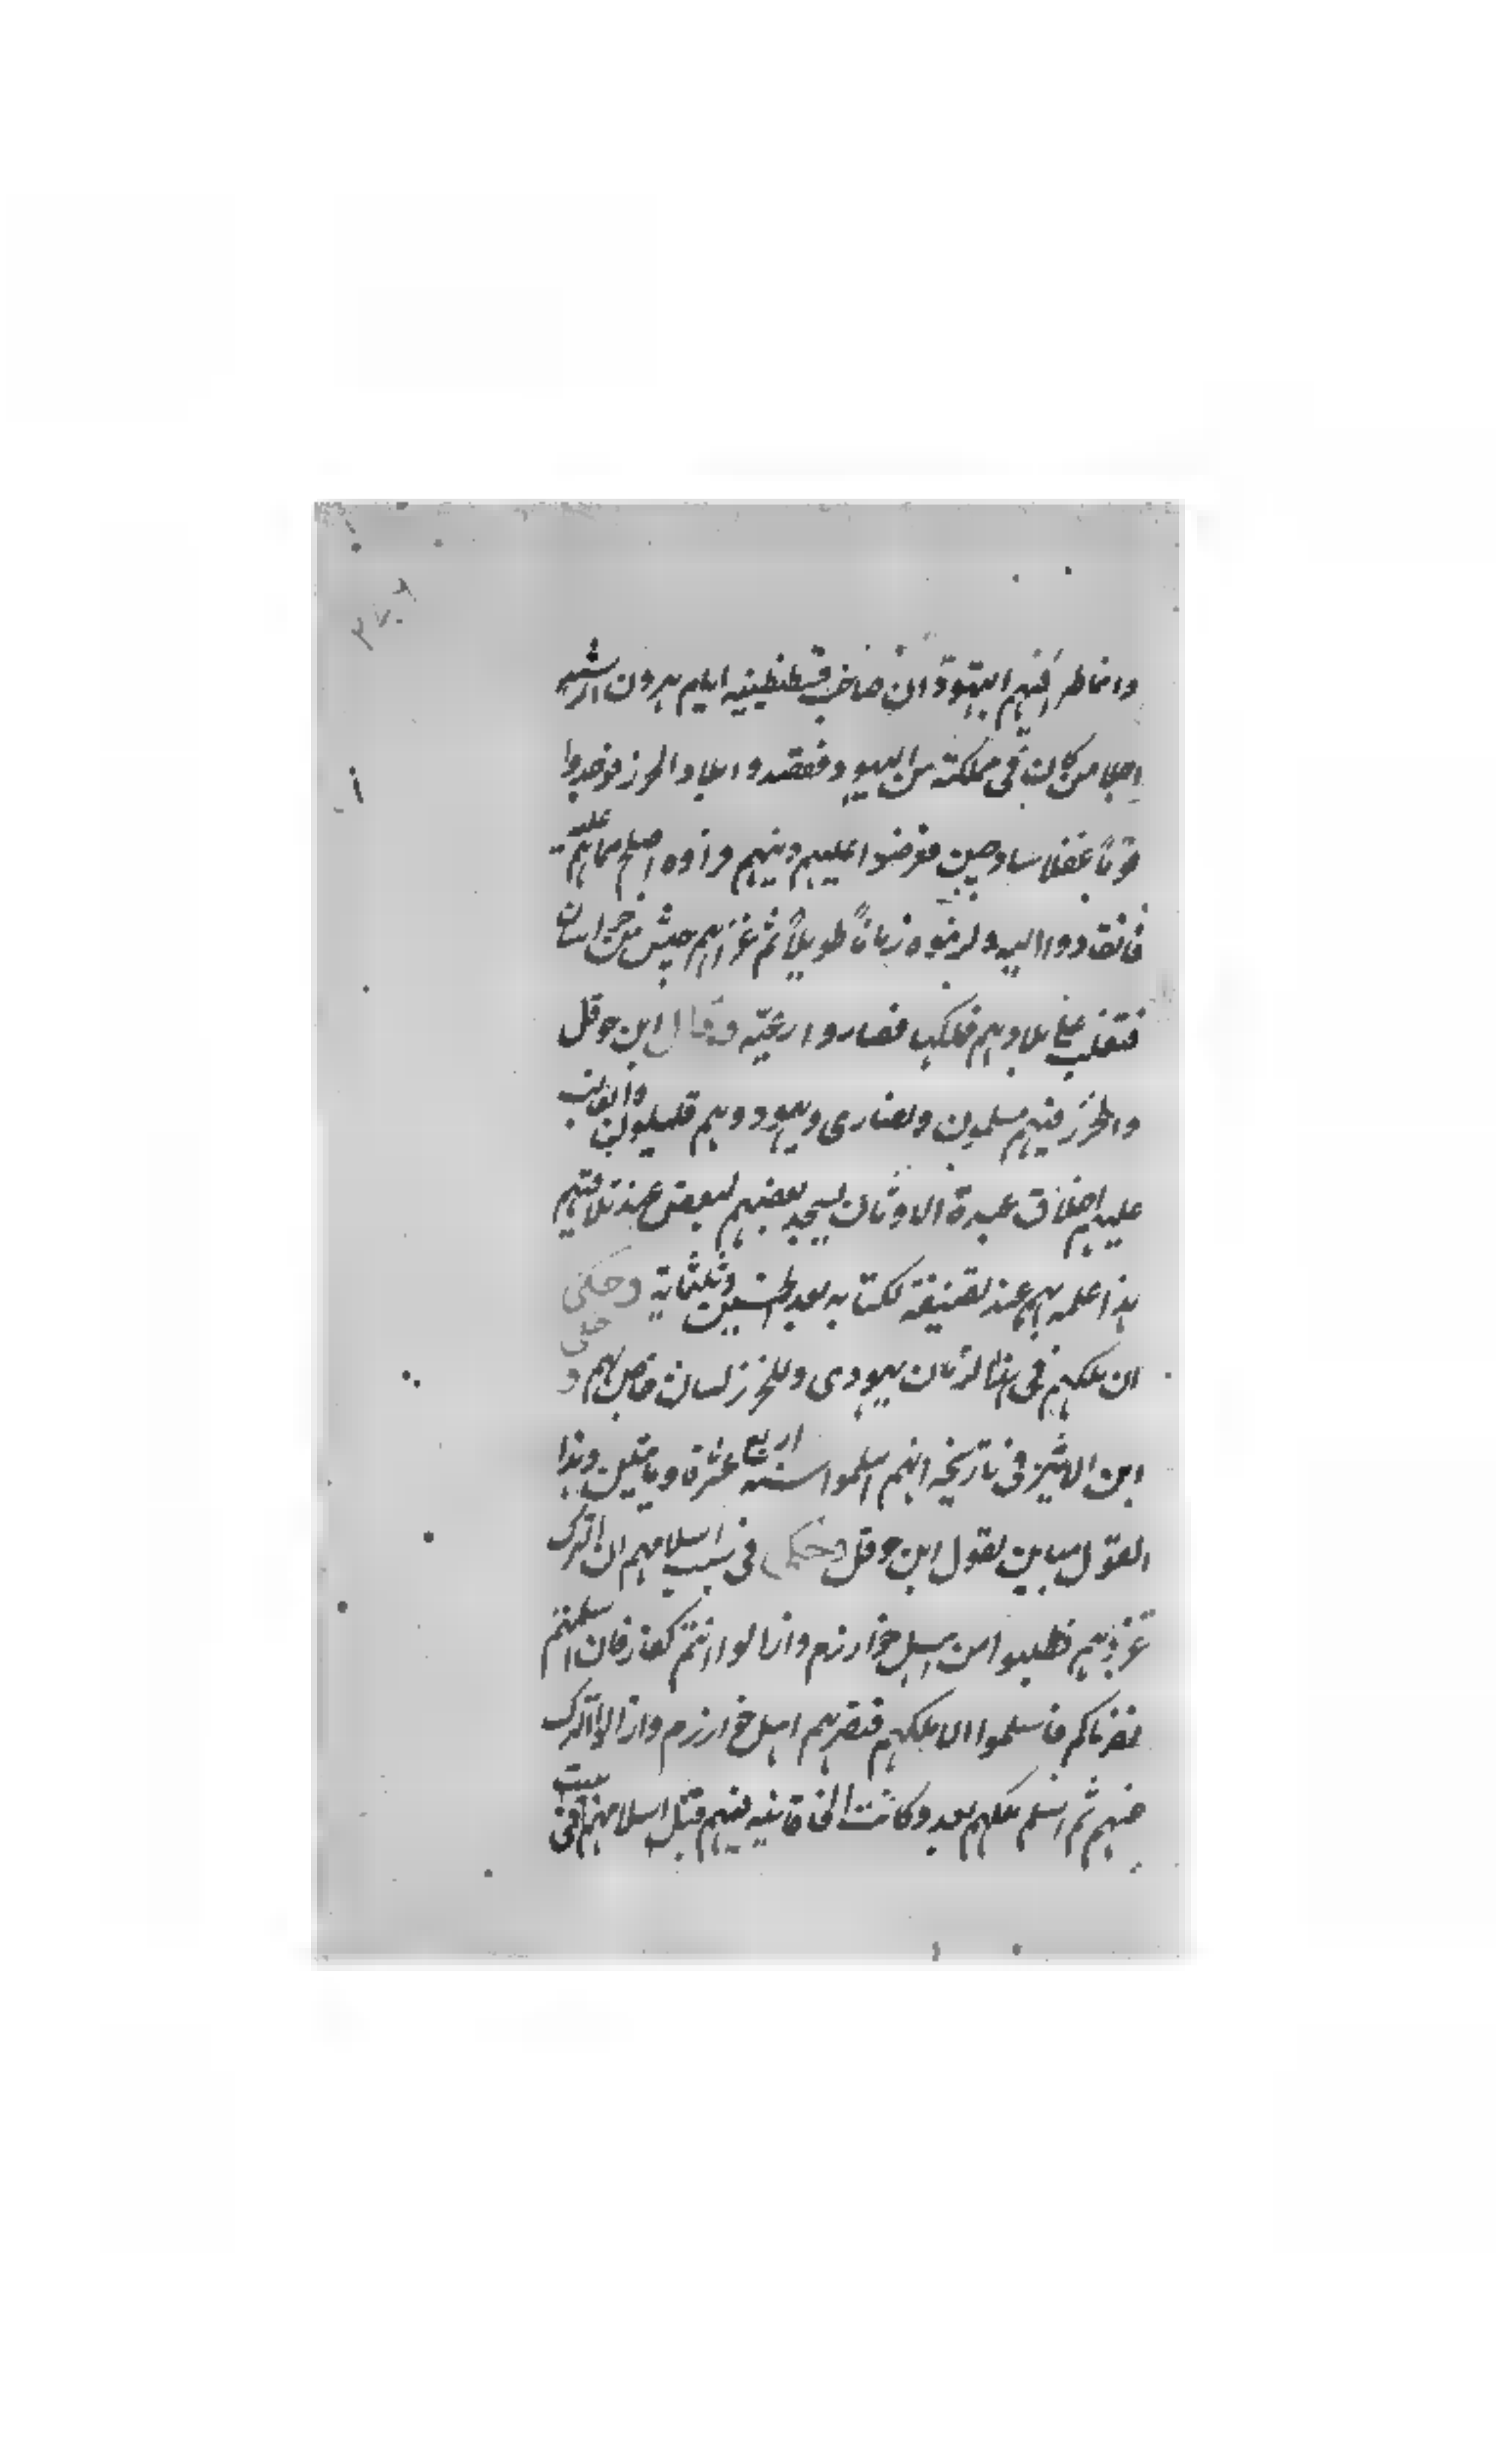 وانما طرا فيهم اليهود ان صاحب قسطنطينيه ايام هرون الرشيد
اجلا من كان في مملكته من اليهود فقصدوا بلاد الخزر فوجدوا
قوماً غفلا ساذجين فعرضوا عليهم دينهم فراوه اصلح مما هم عليه
فانقادوا اليه ولزموه زماناً طويلاً ثم غزاهم جيش من خراسان
فتغلب على بلادهم فملكها فصاروا رعية وقال ابن حوقل
والخزر فيهم مسلمون ونصارى ويهود وهم قليلون والغالب
عليهم اخلاق عبدة الاوثان يسجد بعضهم لبعض عند تلاقيهم
هذا علمه بهم عند تصنيفه لكتابه بعد الخمسين وثلثماية وحكى
ان ملكهم في هذا الزمان يهودى وللخزر لسان خاص بهم و حكى
ابن الاثير في تاريخه انهم اسلموا سنة اربع عشرة ومايتين وهذا
القول مباين لقول ابن حوقل وحكى في سبب اسلامهم ان الترك
غزتهم فطلبوا من اهل خوارزم وقالوا انتم كفار فان اسلمتم
نصرناكم فاسلموا الا ملكهم فنصرهم اهل خوارزم وازالوا الترك
عنهم ثم اسلم ملكهم بعد وكانت الخاقانيه فيهم قبل اسلامهم في بيت